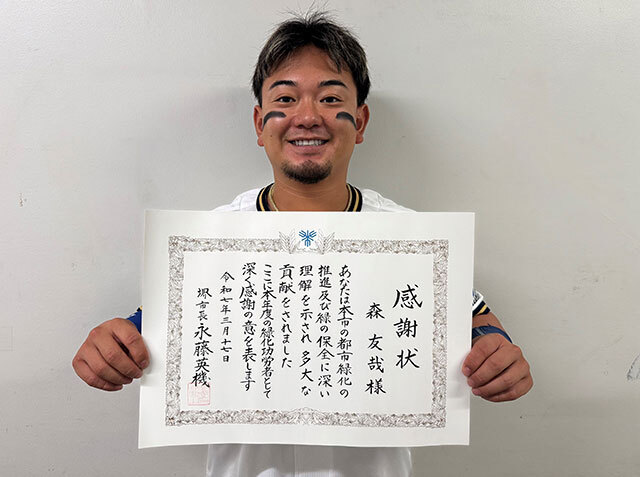 感謝状
森友哉様
あなたは本市の都市緑化の
推進及び緑の保全に深い
理解を示され多大な
貢献をされました
ここに本年度の緑化功労者として
深く感謝の意を表します
令和七年三月十七日
堺市長 永藤英機